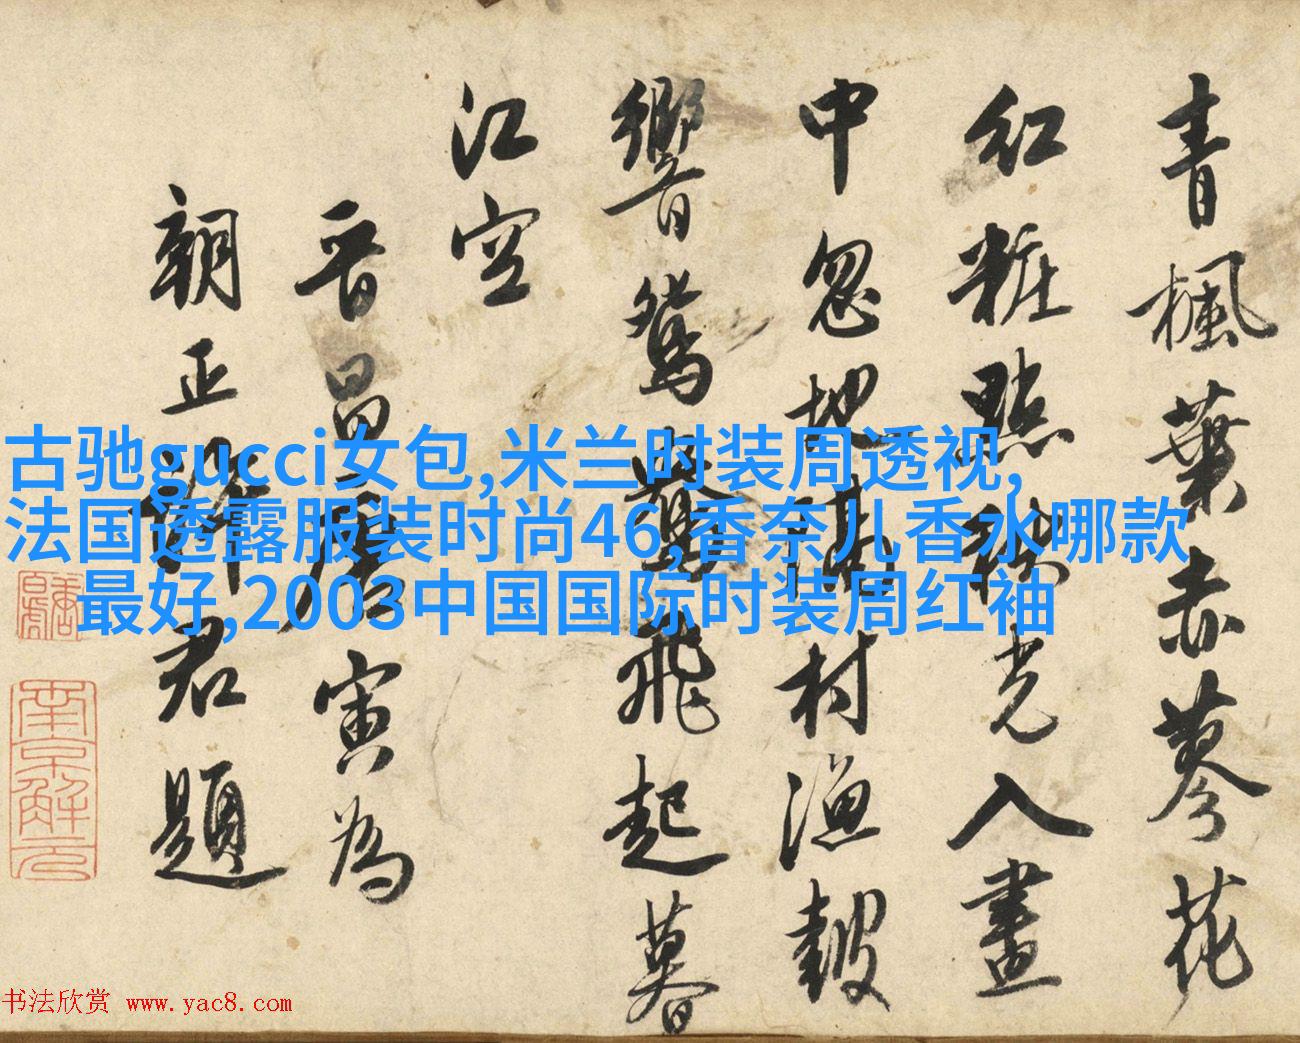 青楓葉赤蓼花
紅粧點秋光入畫
中忽地村漁皷
響鴛鴦飛起暮
江空
晉昌唐寅為
朝正君題
南京解元
古驰gucci女包,米兰时装周透视,
法国透露服装时尚46,香奈儿香水哪款
最好,2003中国国际时装周红袖
书法欣赏 www.yac8.com